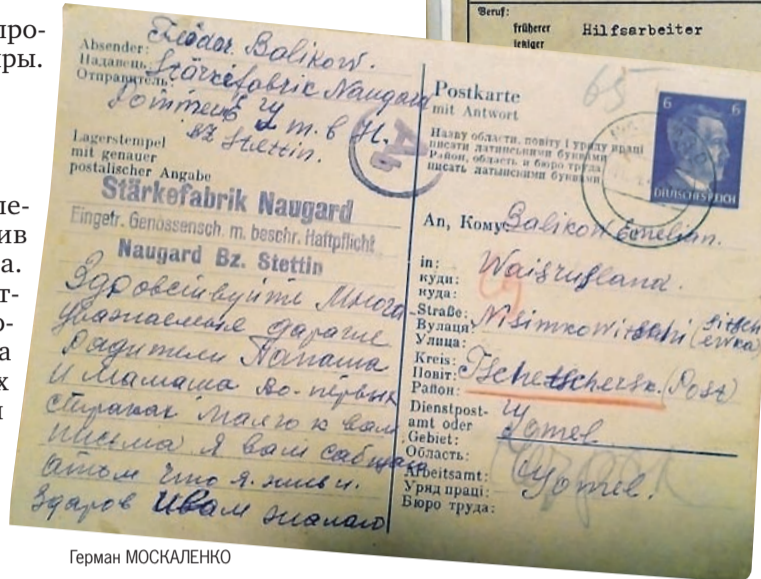 про-
ры.
пе-
ив
а.
т-
о-
а
х
и
Beruf:
früherer Hilfsarbeiter
jetziger
Absender: Feodor. Balikow.
Надавець: Stärkefabric Naugard
Отправитель:
Pommern
m. b H.
Bz Stettin.
Lagerstempel
mit genauer
postalischer Angabe
Stärkefabrik Naugard
Eingetr. Genossensch. m. beschr. Haftpflicht
Naugard Bz. Stettin
Здровствуйте Много-
уважаемые дарагие
радители Папаша
и Мамаша Во-первых
стираках маяго к вам
письма Я вам сабщаю
атом что я. жив и.
здаров И вам жалаю
65
Ab
Postkarte
mit Antwort
Назву области, повіту і уряду праці
писати латинськими буквами
Район, область и бюро труда
писать латынскими буквами
6 6
DEUTSCHES REICH
An, Кому: Balikow Emelian.
in:
куди: Waisrußland.
куда:
Straße: Nisimkowitschi (Sitsch
Вулаця: ewka)
Улица:
Kreis:
Повіт: Tschetschersk. (Post)
Район:
Dienstpost-
amt oder
Gebiet: Gomel
Область:
Arbeitsamt: Gomel!
Уряд праці:
Бюро труда:
Герман МОСКАЛЕНКО